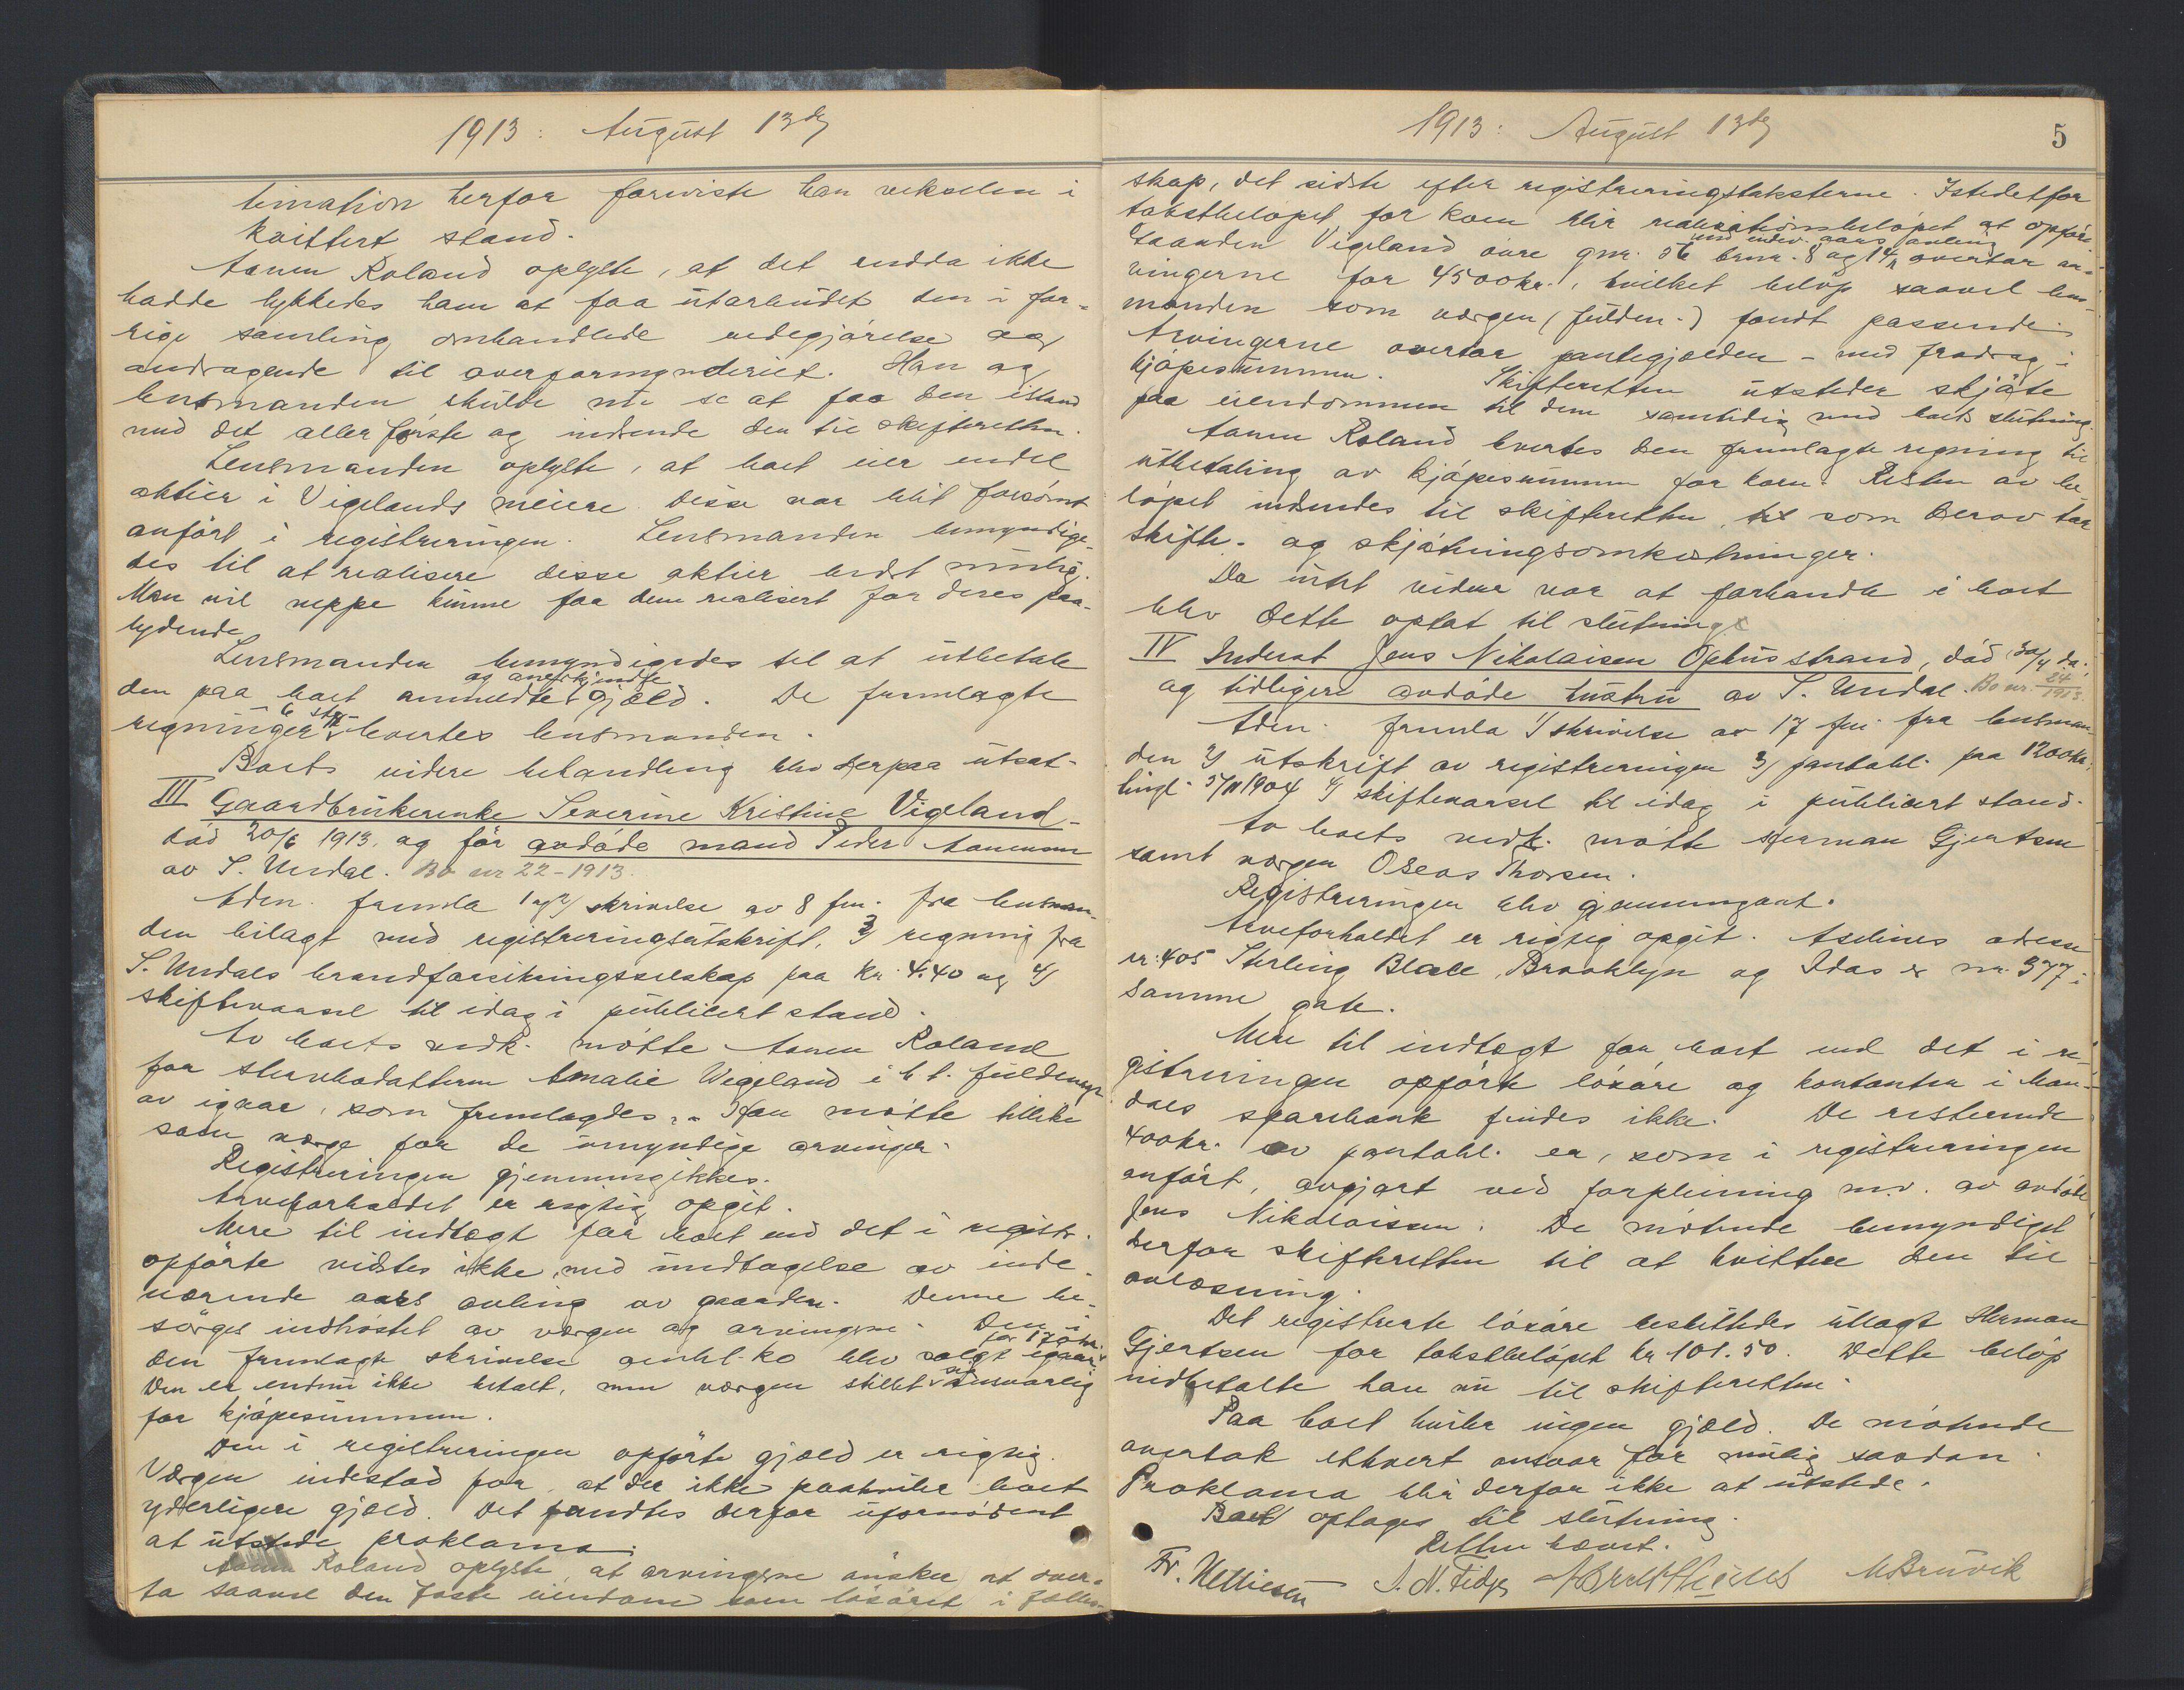 1913: August 13de
timation herfor forviste han vekselen i
kvittert stand.
Aanen Roland oplyste, at det endda ikke
hadde lykkedes ham at faa utarbeidet den i for-
rige samling omhandlede redegjörelse og
andragende til overformynderiet. Han og
lensmanden skulde nu se at faa den istand
med det aller förste og indsende den til skifteretten.
Lensmanden oplyste, at boet eier endel
aktier i Vigelands meieri. Disse var blit forsömt
anfört i registreringen. Lensmanden bemyndige-
des til at realisere disse aktier bedst mulig.
Man vil neppe kunne faa dem realisert for deres paa-
lydende
Lensmanden bemyndigedes til at utbetale
og anerkjendte
den paa boet anmeldte gjæld. De fremlagte
6 stkr
regninger levertes lensmanden.
Boets videre behandling blev derpaa utsat-
III Gaardbrukerenke Severine Kristine Vigeland-
död 20/6 1913. og för avdöde mand Peder Aanensen
av S. Undal. Bo nr 22-1913.
Adm. fremla 1 og 2/ skrivelse av 8 ds. fra lensman-
den bilagt med registreringsutskrift, 3/ regning fra
S. Undals brandforsikringsselskap paa Kr. 4.40 og 4/
skiftevarsel til idag i publicert stand.
Av boets vedk. mötte Aanen Roland
for stervbodatteren Amalie Vegeland i h.t. fuldmagt
av igaar, som fremlagdes. Han mötte tillike
som værge for de umyndige arvinger.
Registreringen gjennemgikkes.
Arveforholdet er rigtig opgit.
Mere til indtægt for boet end det i registr.
opförte vidstes ikke, med undtagelse av inde-
værende aars avling av gaarden. Denne be-
sörges indhöstet av værgen og arvingerne. Den i
for 170 kr.
den fremlagte skrivelse omhl. ko blev solgt igaar.
Den er endnu ikke betalt, men værgen stillet sig ansvarlig
for kjöpesummen.
Den i registreringen opförte gjæld er rigtig.
Værgen indestod for, at der ikke paahviler boet
yderligere gjæld. Det fandtes derfor ufornödent
at utstede proklama.
Aanen Roland oplyste, at arvingerne önsker at over-
ta saavel den faste eiendom som lösöret i fælles-
1913: August 13de
5
skap, det sidste efter registreringstaksterne. Istedetfor
takstbelöpet for koen blir realisationsbelöpet at opföre.
med indev. aars avling
Gaarden Vigeland övre gnr. 56 brnr. 8 og 14 overtar ar-
vingerne for 4500 kr., hvilket belöp saavel lens-
manden som værgen (fuldm.) fandt passende.
Arvingerne overtar pantegjælden - med fradrag i
kjöpesummen. Skifteretten utsteder skjöte
paa eiendommen til dem samtidig med boets slutning.
Aanen Roland leverets den fremlagte regning til
utbetaling av kjöpesummen for koen. Resten av be-
löpet indsendes til skifteretten, som derav tar
skifte- og skjötningsomkostninger.
Da intet videre var at forhandle i boet
blev dette optat til slutning.
IV Inderst Jens Nikolaisen Ophusstrand, död 30/4 d.a.
og tidligere avdöde hustru av S. Undal. Bo nr. 24/1913.
Adm. fremla 1/ skrivelse av 17 fm. fra lensman-
den 2/ utskrift av registreringen 3/ pantobl. paa 1200 kr.
tingl. 1904 4/ skiftevarsel til idag i publicert stand.
Av boets vedk. mötte Herman Gjertsen
samt værgen Oseas Thorsen.
Registreringen blev gjennemgaat.
Arveforholdet er rigtig opgit. Aselines adresse
er: 405 Sterling Place, Brooklyn og Idas er nr. 377 i
samme gate.
Mere til indtægt for boet end det i re-
gistreringen opförte lösöre og kontanter i Man-
dals sparebank findes ikke. De resterende
400 kr. av pantobl. er, som i registreringen
anfört, avgjort ved forpleining m.v. av avdöde
Jens Nikolaisen. De mötende bemyndiget
derfor skifteretten til at kvittere den til
avlæsning.
Det registrerte lösöre besluttedes utlagt Herman
Gjertsen for takstbelöpet kr 101.50. Dette belöp
indbetalte han nu til skifteretten.
Paa boet hviler ingen gjæld. De mötende
overtok ethvert ansvar for mulig saadan.
Proklama blir derfor ikke at utstede.
Boet optages til slutning.
Retten hævet.
Fr. Nelliesen S. N. Fidje M. Bruvik